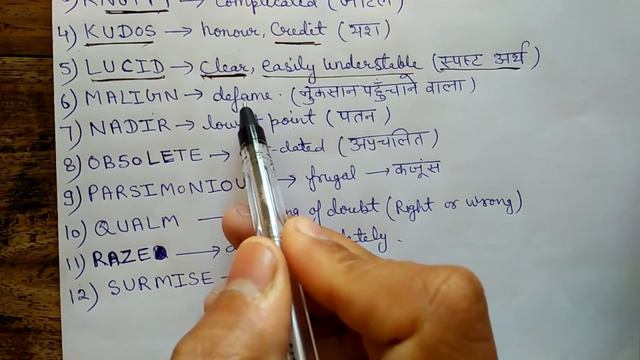 complicated (जटिल)
4) KUDOS → honour, Credit (यश)
5) LUCID → Clear, easily understable (स्पष्ट अर्थ)
6) MALIGN → defame. (नुकसान पहुँचाने वाला)
7) NADIR → point (पतन)
8) OBSOLETE → dated (अप्रचलित)
9) → frugal → कजूंस
10) QUALM → of doubt (Right or wrong)
11) RAZE →
12) SURMISE →